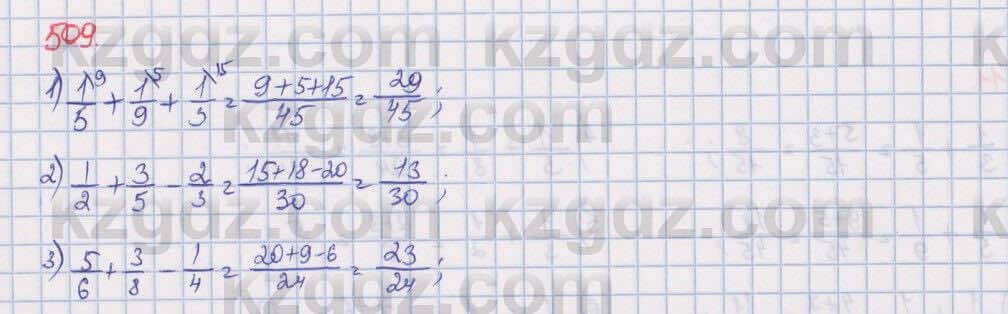 509.
1) 1\9/5 + 1\5/9 + 1\15/3 = (9+5+15)/45 = 29/45;
2) 1/2 + 3/5 - 2/3 = (15+18-20)/30 = 13/30;
3) 5/6 + 3/8 - 1/4 = (20+9-6)/24 = 23/24;
kzgdz.com kzgdz.com
kzgdz.com
kzgdz.com kzgdz.com
kzgdz.com